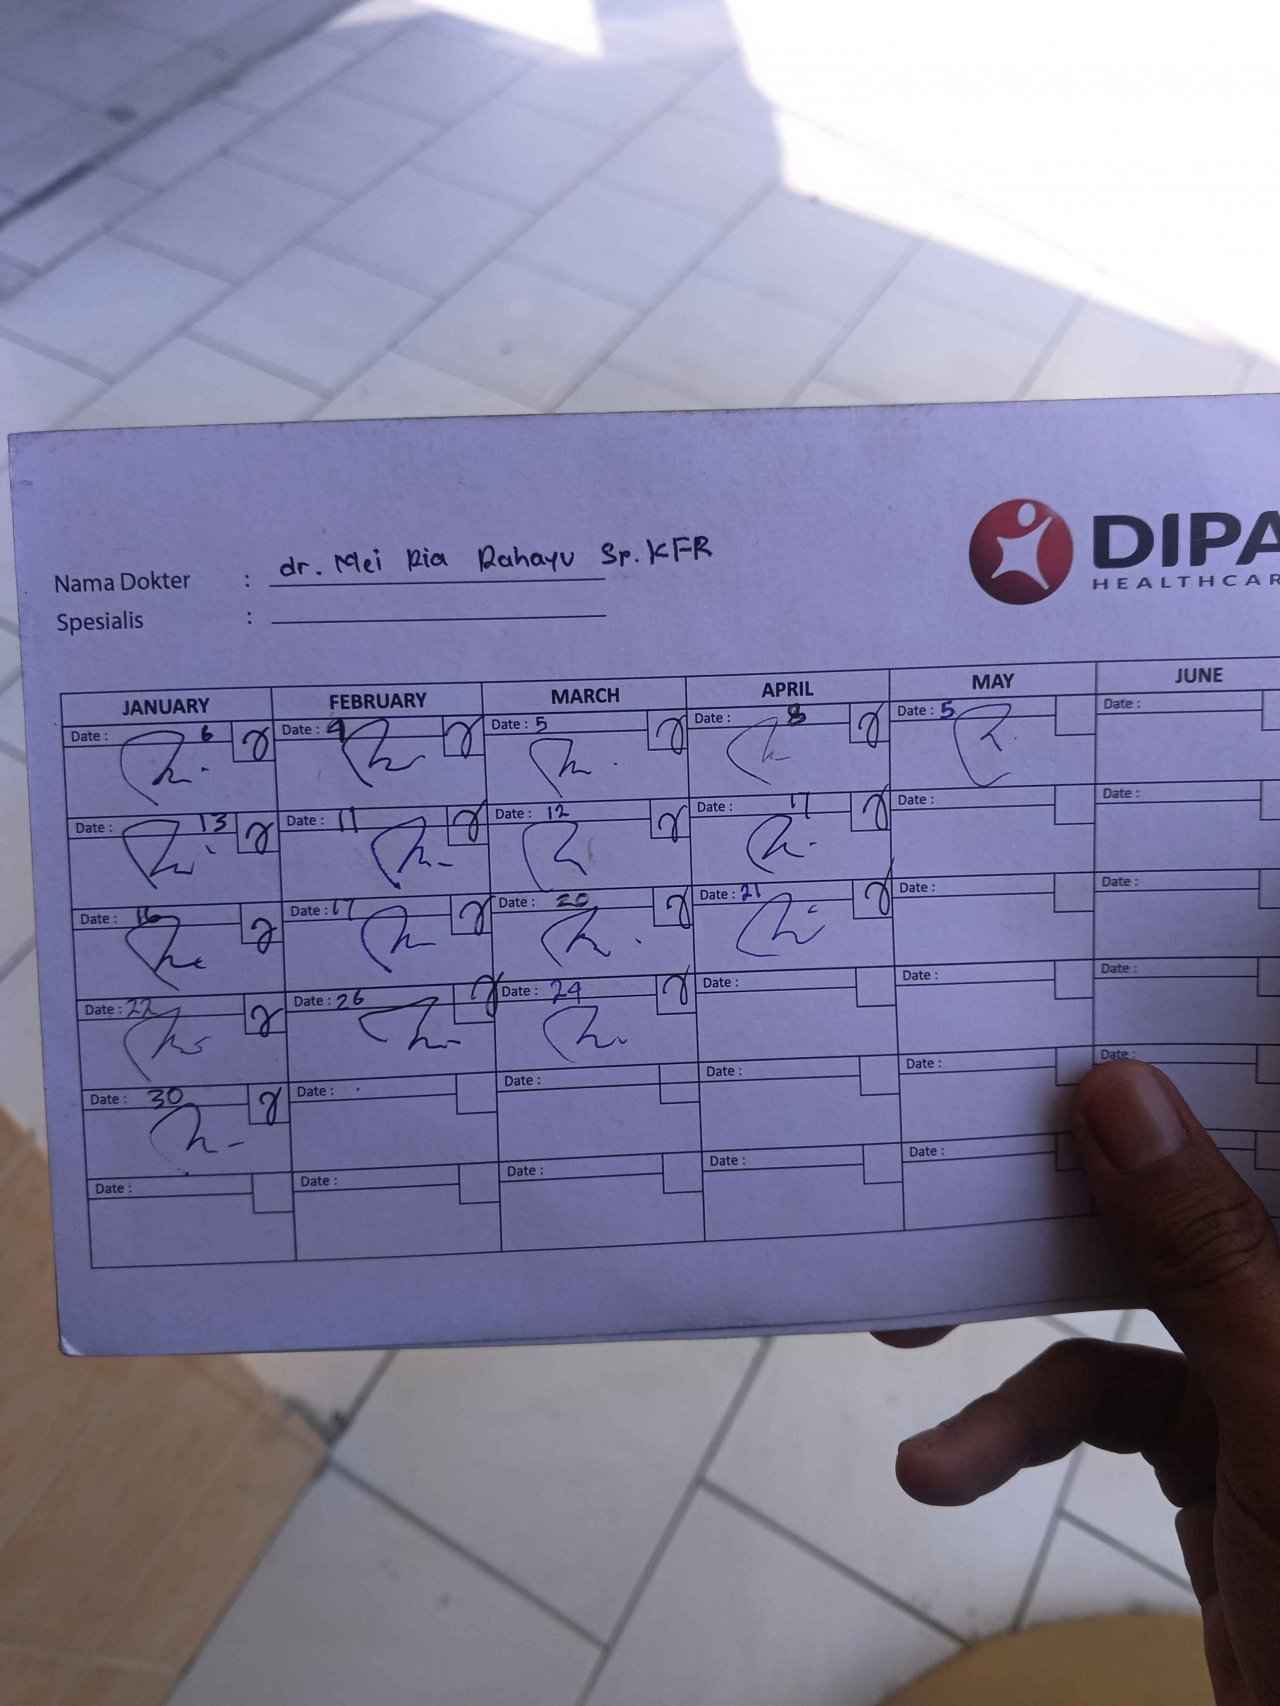 dr. Mei Ria Rahayu Sp.KFR
Nama Dokter :
Spesialis :
DIPA
HEALTHCAR
JANUARY FEBRUARY MARCH APRIL MAY JUNE
Date : 6 Date : 9 Date : 5 Date : 8 Date : 5 Date :
Date : 13 Date : 11 Date : 12 Date : 17 Date : Date :
Date : 16 Date : 17 Date : 20 Date : 21 Date : Date :
Date : 22 Date : 26 Date : 24 Date : Date : Date :
Date : 30 Date : Date : Date : Date : Date :
Date : Date : Date : Date : Date :